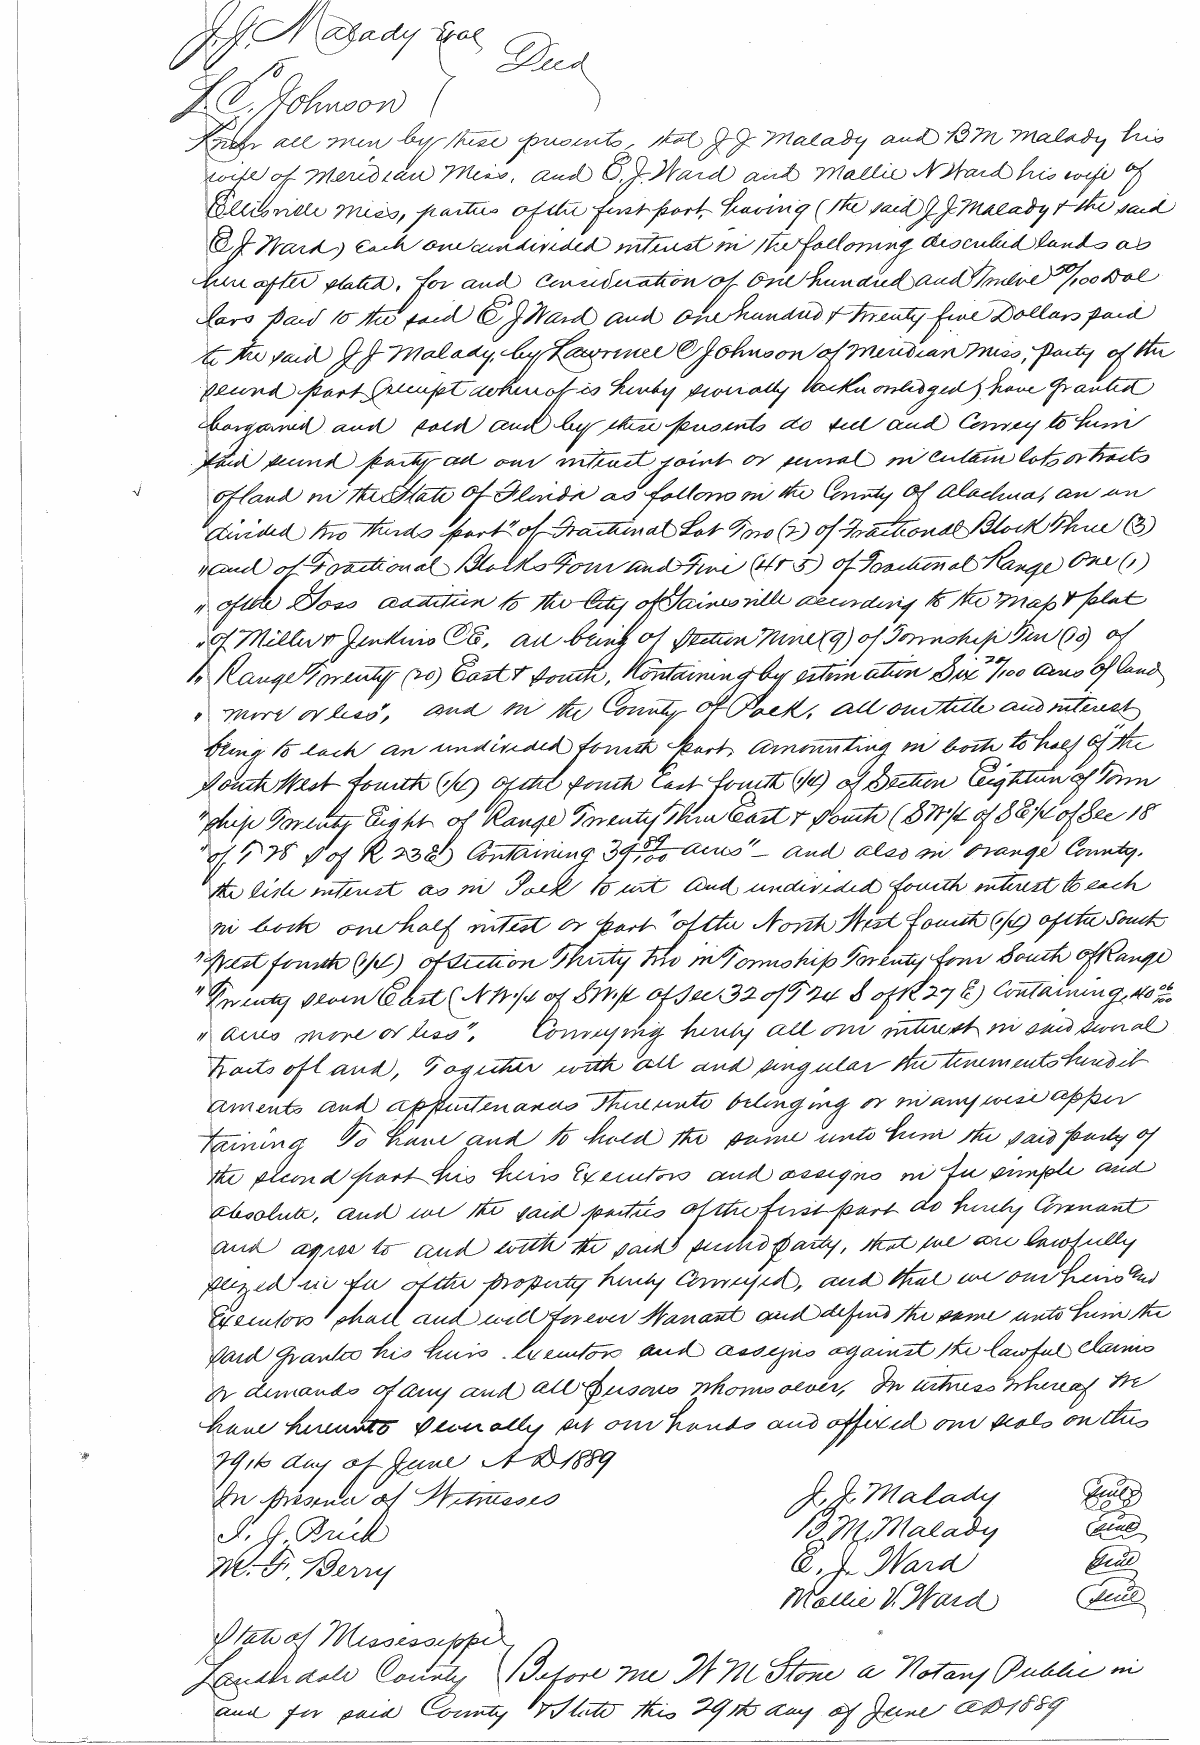 J. J. Malady Et al
to Deed
L. C. Johnson
Know all men by these presents, that J J Malady and B M Malady his
wife of Meridian Miss. and E. J. Ward and Mallie N Ward his wife of
Ellisville Miss, parties of the first part, having (the said J J Malady & the said
E J Ward) each one undivided interest in the following described lands as
here after stated, for and consideration of One hundred and Twelve 50/100 Dol
lars paid to the said E J Ward and one hundred & twenty five Dollars paid
to the said J J Malady, by Lawrence C Johnson of Meridian Miss, party of the
second part (receipt whereof is hereby severally acknowledged) have granted
bargained and sold and by these presents do sell and Convey to him
said second party all our interest joint or several in certain lots or tracts
of land in the State of Florida as follows in the County of Alachua, an un
divided two thirds part" of Fractional Lot Two (2) of Fractional Block Three (3)
" and of Fractional Blocks Four and Five (4 & 5) of Fractional Range One (1)
" of the Goss addition to the City of Gainesville according to the map & plat
" of Miller & Jenkins CE, all being of Section Nine (9) of Township Ten (10) of
" Range Twenty (20) East & South, Containing by estimation Six /100 acres of land
" more or less", and in the County of Polk, all our title and interest
being to each an undivided fourth part, amounting in both to half of "the
South West fourth (1/4) of the South East fourth (1/4) of Section Eighteen of Town
"ship Twenty Eight of Range Twenty Three East & South (SW1/4 of SE1/4 of Sec 18
" of T 28 S of R 23 E) Containing 39 89/100 acres" – and also in Orange County.
the like interest as in Polk to wit and undivided fourth interest to each
in both one half intest or part "of the North West fourth (1/4) of the South
" West fourth (1/4) of Section Thirty two in Township Twenty four South of Range
" Twenty seven East (NW1/4 of SW1/4 of Sec 32 of T 24 S of R 27 E) Containing 40 /100
" acres more or less". Conveying hereby all our interest in said several
tracts of land, Together with all and singular the tenements heredit
aments and appurtenances thereunto belonging or in any wise apper
taining To have and to hold the same unto him the said party of
the second part his heirs Executors and assigns in fee simple and
absolute, and we the said parties of the first part do hereby Covenant
and agree to and with the said second party, that we are lawfully
seized in fee of the property hereby Conveyed, and that we our heirs and
Executors shall and will forever Warrant and defend the same unto him the
said Grantee his heirs. executors and assigns against the lawful claims
or demands of any and all persons whomsoever, In witness whereof we
have hereunto severally set our hands and affixed our seals on this
29th day of June A D 1889
In presence of Witnesses J. J. Malady Seal
B. M. Malady Seal
M. F. Berry E. J. Ward Seal
Mallie V. Ward Seal
State of Mississippi
Lauderdale County Before me W M Stone a Notary Public in
and for said County & State this 29th day of June AD 1889